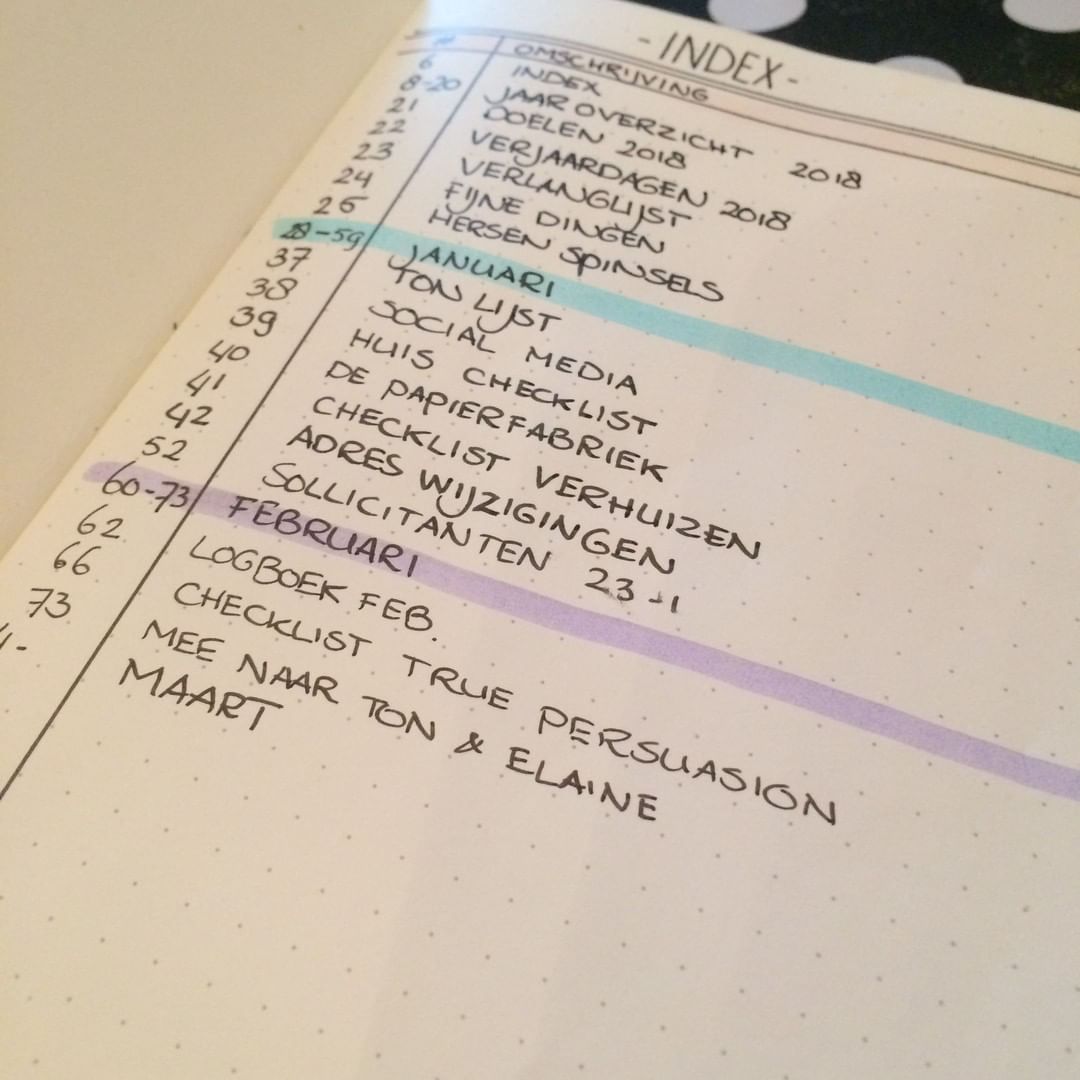 -INDEX-
OMSCHRIJVING
6 INDEX
8-20 JAAROVERZICHT 2018
21 DOELEN 2018
22 VERJAARDAGEN 2018
23 VERLANGLIJST
24 FIJNE DINGEN
26 HERSEN SPINSELS
28-59 JANUARI
37 TON LIJST
38 SOCIAL MEDIA
39 HUIS CHECKLIST
40 DE PAPIERFABRIEK
41 CHECKLIST VERHUIZEN
42 ADRES WIJZIGINGEN
52 SOLLICITANTEN 23-1
60-73 FEBRUARI
62 LOGBOEK FEB.
66 CHECKLIST TRUE PERSUASION
73 MEE NAAR TON & ELAINE
MAART